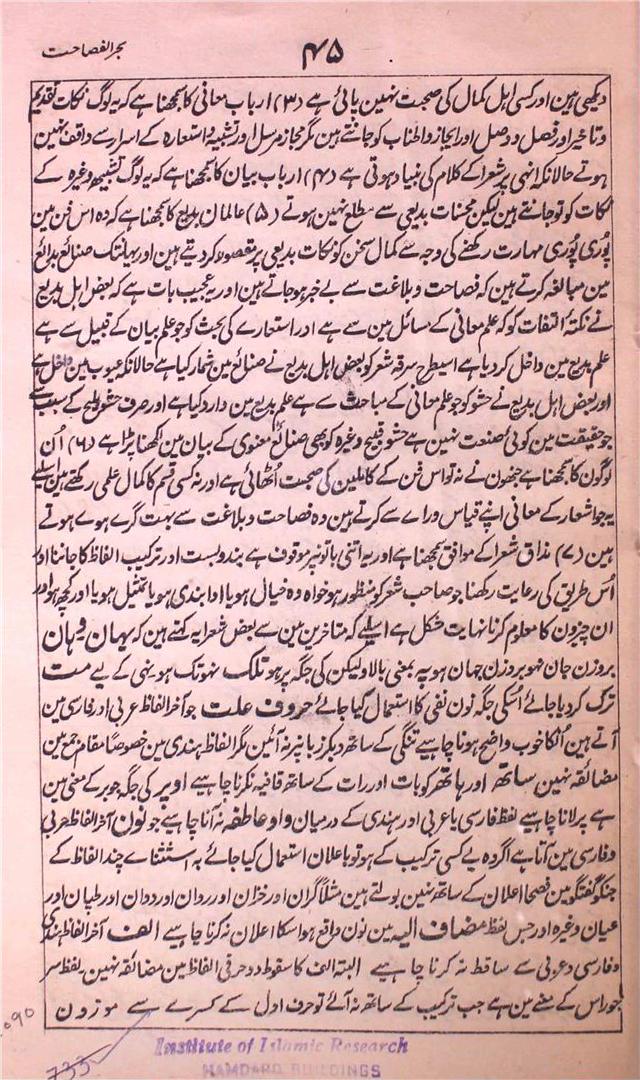 بحر الفصاحت
۴۵
دیکھی ہین اور کسی اہل کمال کی صحبت نہین پائی ہے (۳) ارباب معانی کا سمجھنا ہے کہ یہ لوگ نکات تقدیم
وتاخیر اور فصل ووصل اور ایجاز واطناب کو جانتے ہین مگر مجاز مرسل اور تشبیہ واستعارہ کے اسرار سے واقف نہین
ہوتے حالانکہ انہی پر شعرا کے کلام کی بنیاد ہوتی ہے (۴) ارباب بیان کا سمجھنا ہے کہ یہ لوگ تشبیہ وغیرہ کے
نکات کو تو جانتے ہین لیکن محسنات بدیعی سے مطلع نہین ہوتے (۵) عالمان بدیع کا سمجھنا ہے کہ وہ اس فن مین
پوری پوری مہارت رکھنے کی وجہ سے کمال سخن کو نکات بدیعی پر مقصور کر دیتے ہین اور یہانتک صنائع بدائع
مین مبالغہ کرتے ہین کہ فصاحت وبلاغت سے بے خبر ہو جاتے ہین اور یہ عجیب بات ہے کہ بعض اہل بدیع
نے نکتۂ التفات کو کہ علم معانی کے مسائل مین سے ہے اور استعارے کی بحث کو جو علم بیان کے قبیل سے ہے
علم بدیع مین داخل کر دیا ہے اسیطرح سرقہ شعر کو بعض اہل بدیع نے صنائع مین شمار کیا ہے حالانکہ عیوب مین داخل ہے
اور بعض اہل بدیع نے حشو کو جو علم معانی کے مباحث سے ہے علم بدیع مین وارد کیا ہے اور صرف حشو ملیح کے سبب سے
جو حقیقت مین کوئی صنعت نہین ہے حشو قبیح وغیرہ کو بھی صنائع معنوی کے بیان مین لکھنا پڑا ہے (۶) اُن
لوگون کا سمجھنا ہے جنھون نے نہ تو اس فن کے کاملین کی صحبت اُٹھائی ہے اور نہ کسی قسم کا کمال علمی رکھتے ہین اسلیے
یہ جو اشعار کے معانی اپنے قیاس وراے سے کرتے ہین وہ فصاحت وبلاغت سے بہت گرے ہوے ہوتے
ہین (۷) مذاق شعرا کے موافق سمجھنا ہے اور یہ اتنی باتونپر موقوف ہے بندوبست اور ترکیب الفاظ کا جاننا اور
اُس طریق کی رعایت رکھنا جو صاحب شعر کو منظور ہو خواہ وہ خیال ہو یا ادا بندی ہو یا تمثیل ہو یا اور کچھ ہو اور
ان چیزون کا معلوم کرنا نہایت مشکل ہے اسلیے کہ متاخرین مین سے بعض شعرا یہ کہتے ہین کہ یہان وہان
بروزن جان نہو بروزن جہان ہو پہ بمعنی بالا ولیکن کی جگہ پر ہو تلک نہو تک ہو نہی کے لیے مت
ترک کر دیا جائے اُسکی جگہ نون نفی کا استعمال کیا جائے حروف علت جو آخر الفاظ عربی اور فارسی مین
آتے ہین اُنکا خوب واضح ہونا چاہیے تنگی کے ساتھ دبکر زبانپر نہ آئین مگر الفاظ ہندی مین خصوصاً مقام جمع مین
مضائقہ نہین ساتھ اور ہاتھ کو بات اور رات کے ساتھ قافیہ نکرنا چاہیے اوپر کی جگہ جو بر کے معنی مین
ہے پر لانا چاہیے لفظ فارسی یا عربی اور ہندی کے درمیان واو عاطفہ نہ آنا چاہیے جو نون آخر الفاظ عربی
وفارسی مین آتا ہے اگر وہ بے کسی ترکیب کے ہو تو باعلان استعمال کیا جائے بہ استثناے چند الفاظ کے
جنکو گفتگو مین فصحا اعلان کے ساتھ نہین بولتے ہین مثلاً گران اور خزان اور روان اور دوان اور طپان اور
عیان وغیرہ اور جس لفظ مضاف الیہ مین نون واقع ہو اسکا اعلان نہ کرنا چاہیے الف آخر الفاظ ہندی
وفارسی وعربی سے ساقط نہ کرنا چاہیے البتہ الف کا سقوط دو حرفی الفاظ مین مضائقہ نہین لفظ سر
جو راس کے معنے مین ہے جب ترکیب کے ساتھ نہ آئے تو حرف اول کے کسرے سے موزون
Institute of Islamic Research
HAMDARD BUILDINGS
733